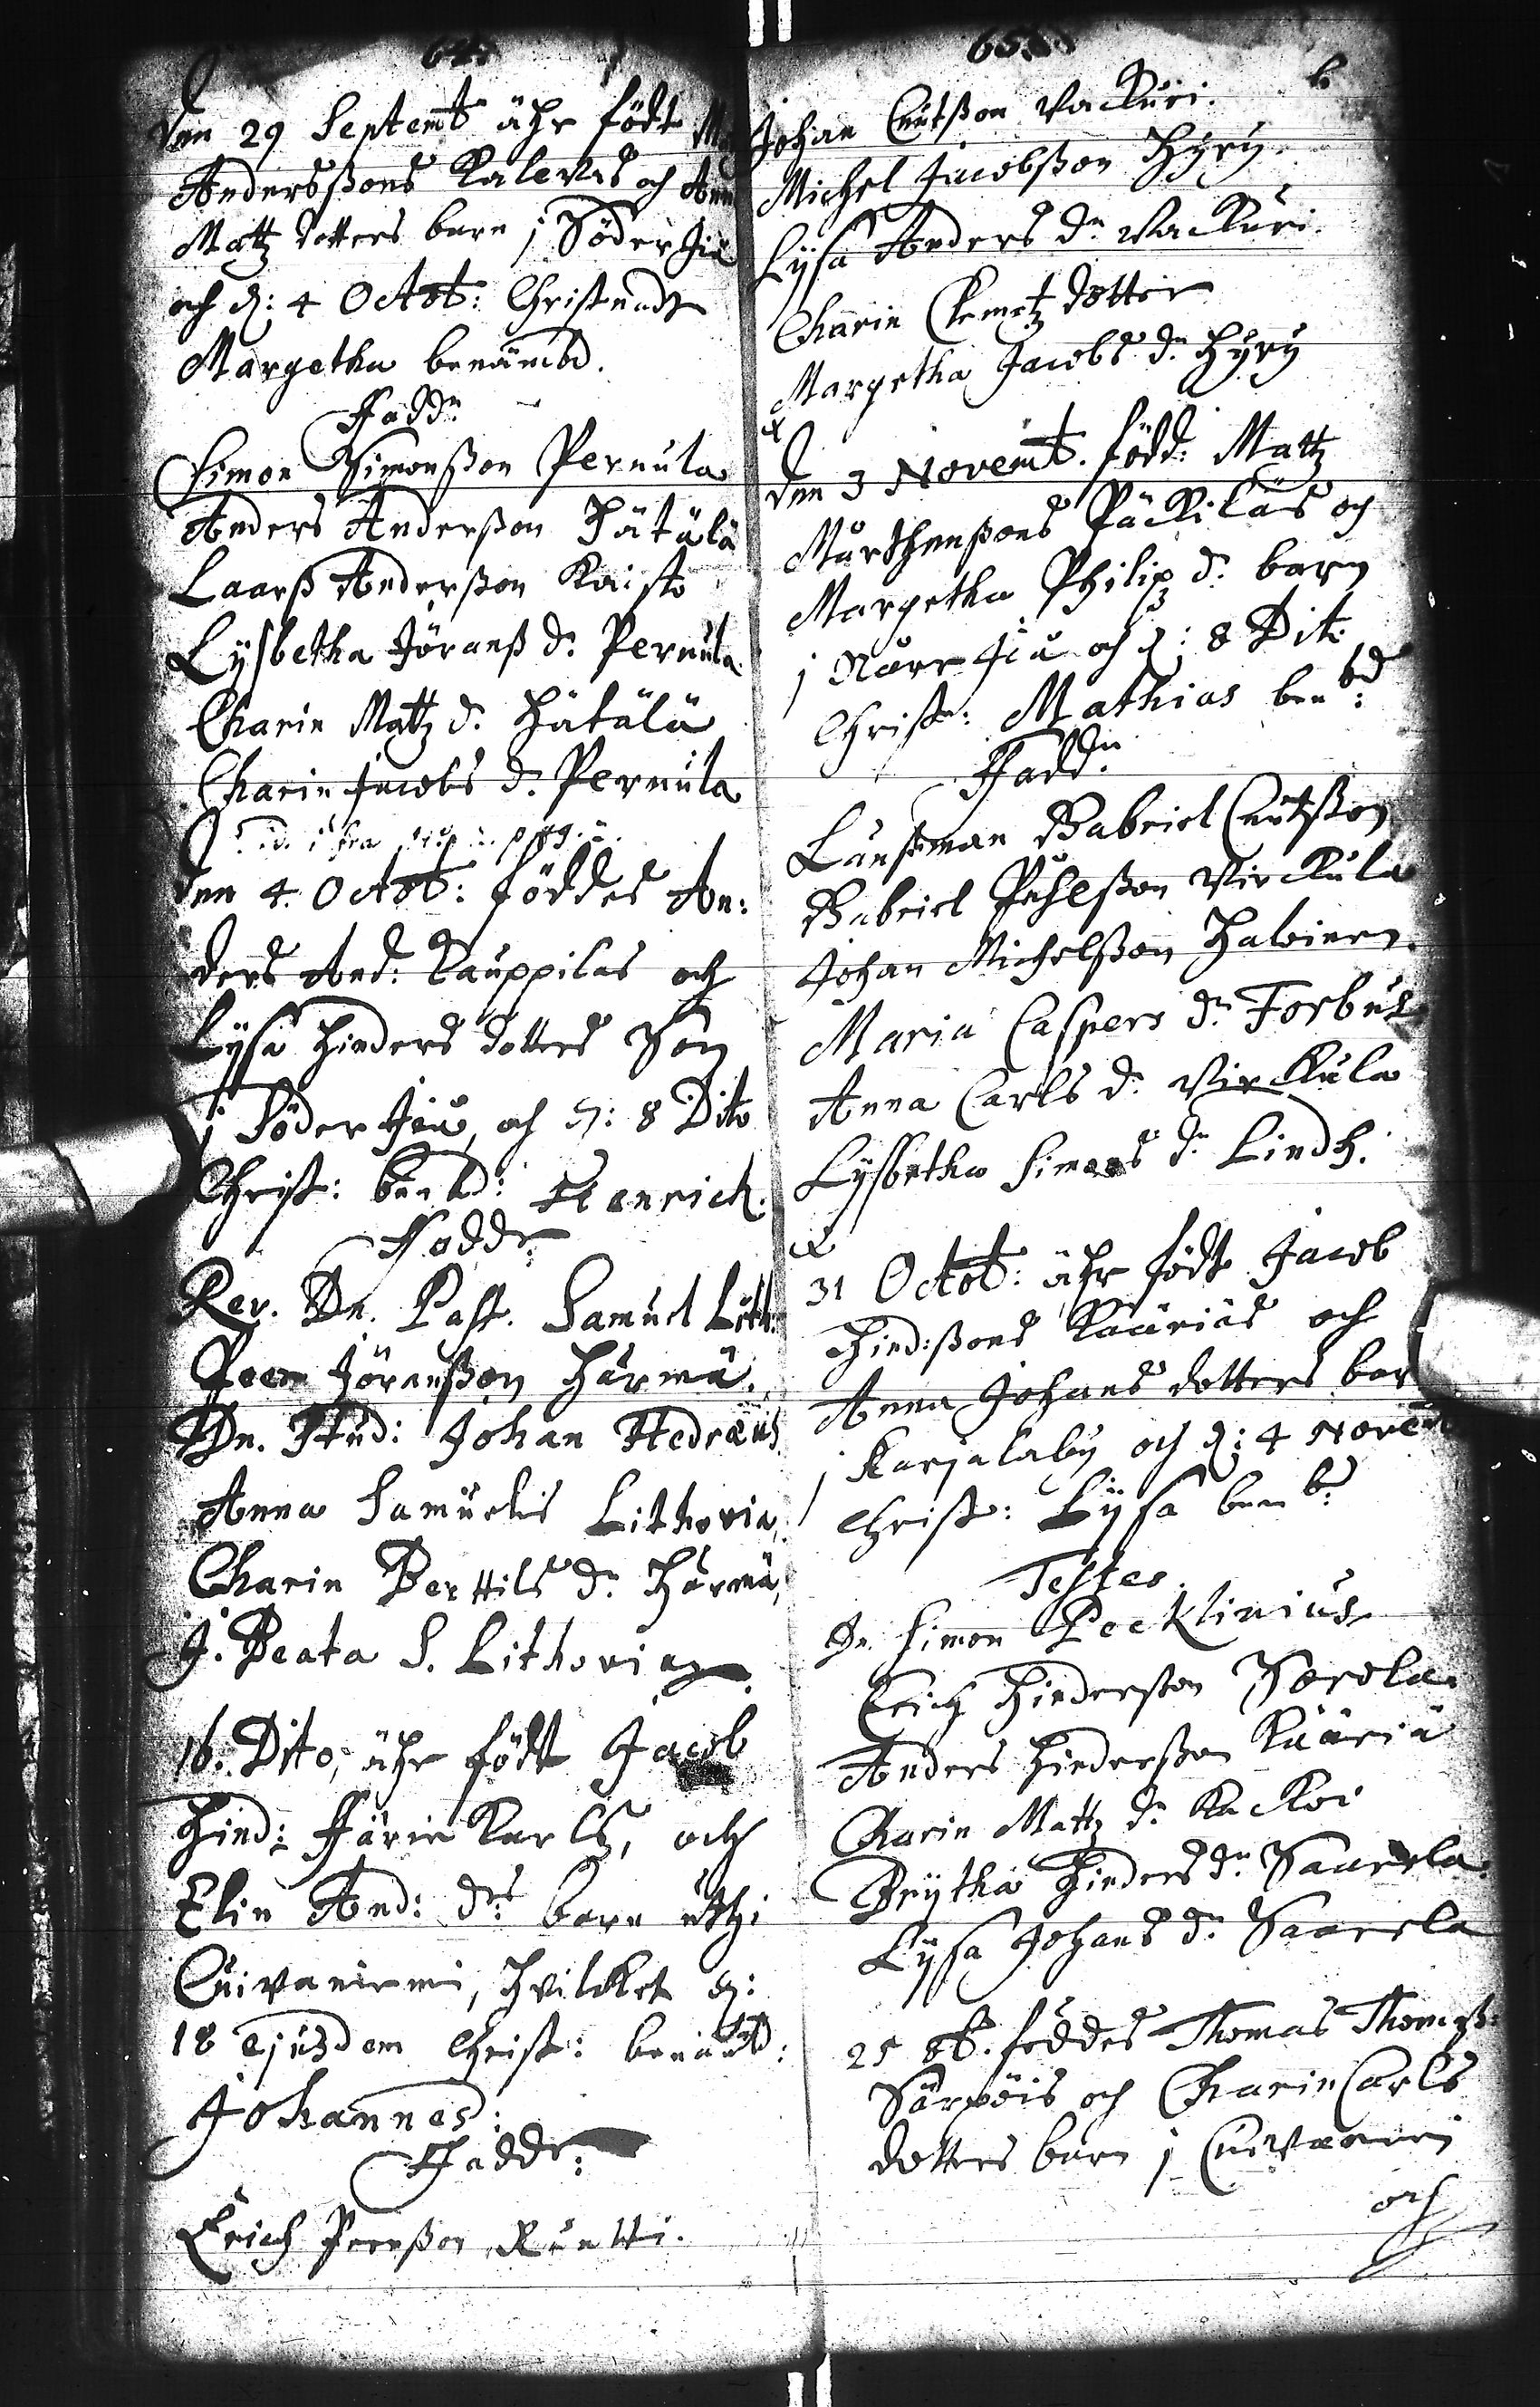 64.
Den 29 Septembr ähr födt
Anderssons Kalevas och Ann
Mattz dotters barn j Söder Jio
och d: 4 Octob: Christnadt
Margetha benämbd.
Fadd:
Simon Simonsson Pernula
Anders Andersson Hätälä
Laarss Andersson Kaisto
Lysbetha Jöranss d: Pernula
Charin Mattz d: Hätälä
Charin Jacobs d: Pernula
Den 4 Octob: föddes An:
ders And: Kauppilas och
Lysa Hinders dotters Son
j Söder Jiu, och d: 8 Dito
Christ: benbd: Henrich.
Fadd:
Rev. Dn. Past. Samuel Lith:
Peer Jöransson Härmä.
Dn. Stud: Johan Hedræus
Anna Samuelis Lithovia,
Charin Berttils d: Härmä,
J. Beata S. Lithovia
16. Dito, ähr födt Jacob
Hind: Färie Karls, och
Elin And: ds barn uthi
Cuivaniemi, hvilcket d:
18 ejusdem Christ: benämbd:
Johannes:
Fadd:
Erich Peersson Runtti.
65.
6
Johan Cnutsson Vackuri.
Michel Jacobsson Hyry.
Lysa Anders d: Vackuri.
Charin Clemetz dotter
Margetha Jacobs d: Hyry
Den 3 Novemb. född: Mattz
Mårthenssons Päckiläs och
Margetha Philip d: barn
j Norr Jiu och d: 8 Dito
Christ: Mathias benbd:
Fadd:
Länssman Gabriel Cnutsson
Gabriel Påhlsson Virckula
Johan Michelsson Halvinen.
Maria Caspers d: Forbus
Anna Carls d: Virckula
Lysbetha Simons d: Lindh.
31 Octob: ähr födt Jacob
Hind:ssons Kääriäs och
Anna Johans dotters bar
j Karjalaby och d: 4 Novem
Christ: Lysa benb:
Testes.
Dn. Simon Peeklinius
Erich Hindersson Sorola.
Anders Hindersson Kääriä
Charin Mattz d: Kackoi
Brytha Hinders d: Saarela
Lysa Johans d: Saarela
25 8b. föddes Thomas Thomss:
Särpöis och Charin Carls
dotters barn j Cuivaniemi
och